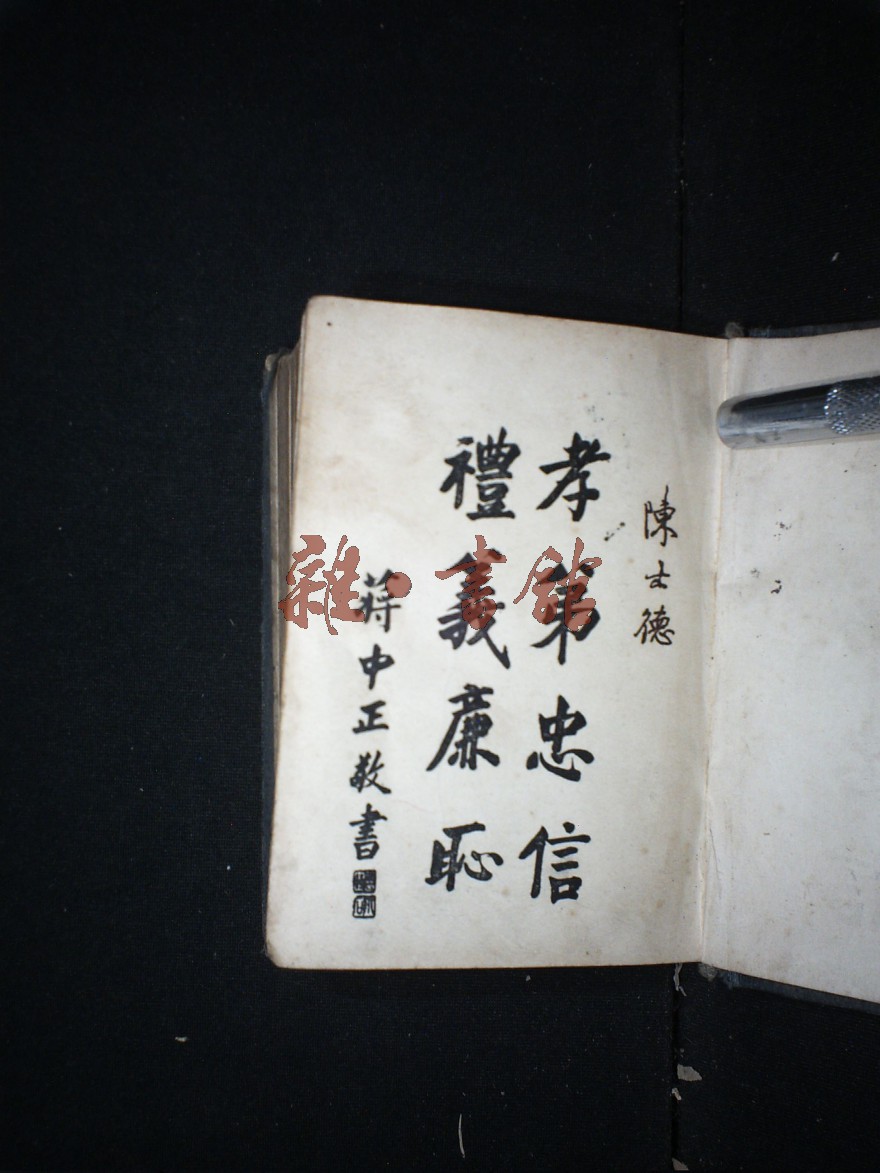 陳士德
孝弟忠信
禮義廉恥
蔣中正敬書
雜·書館